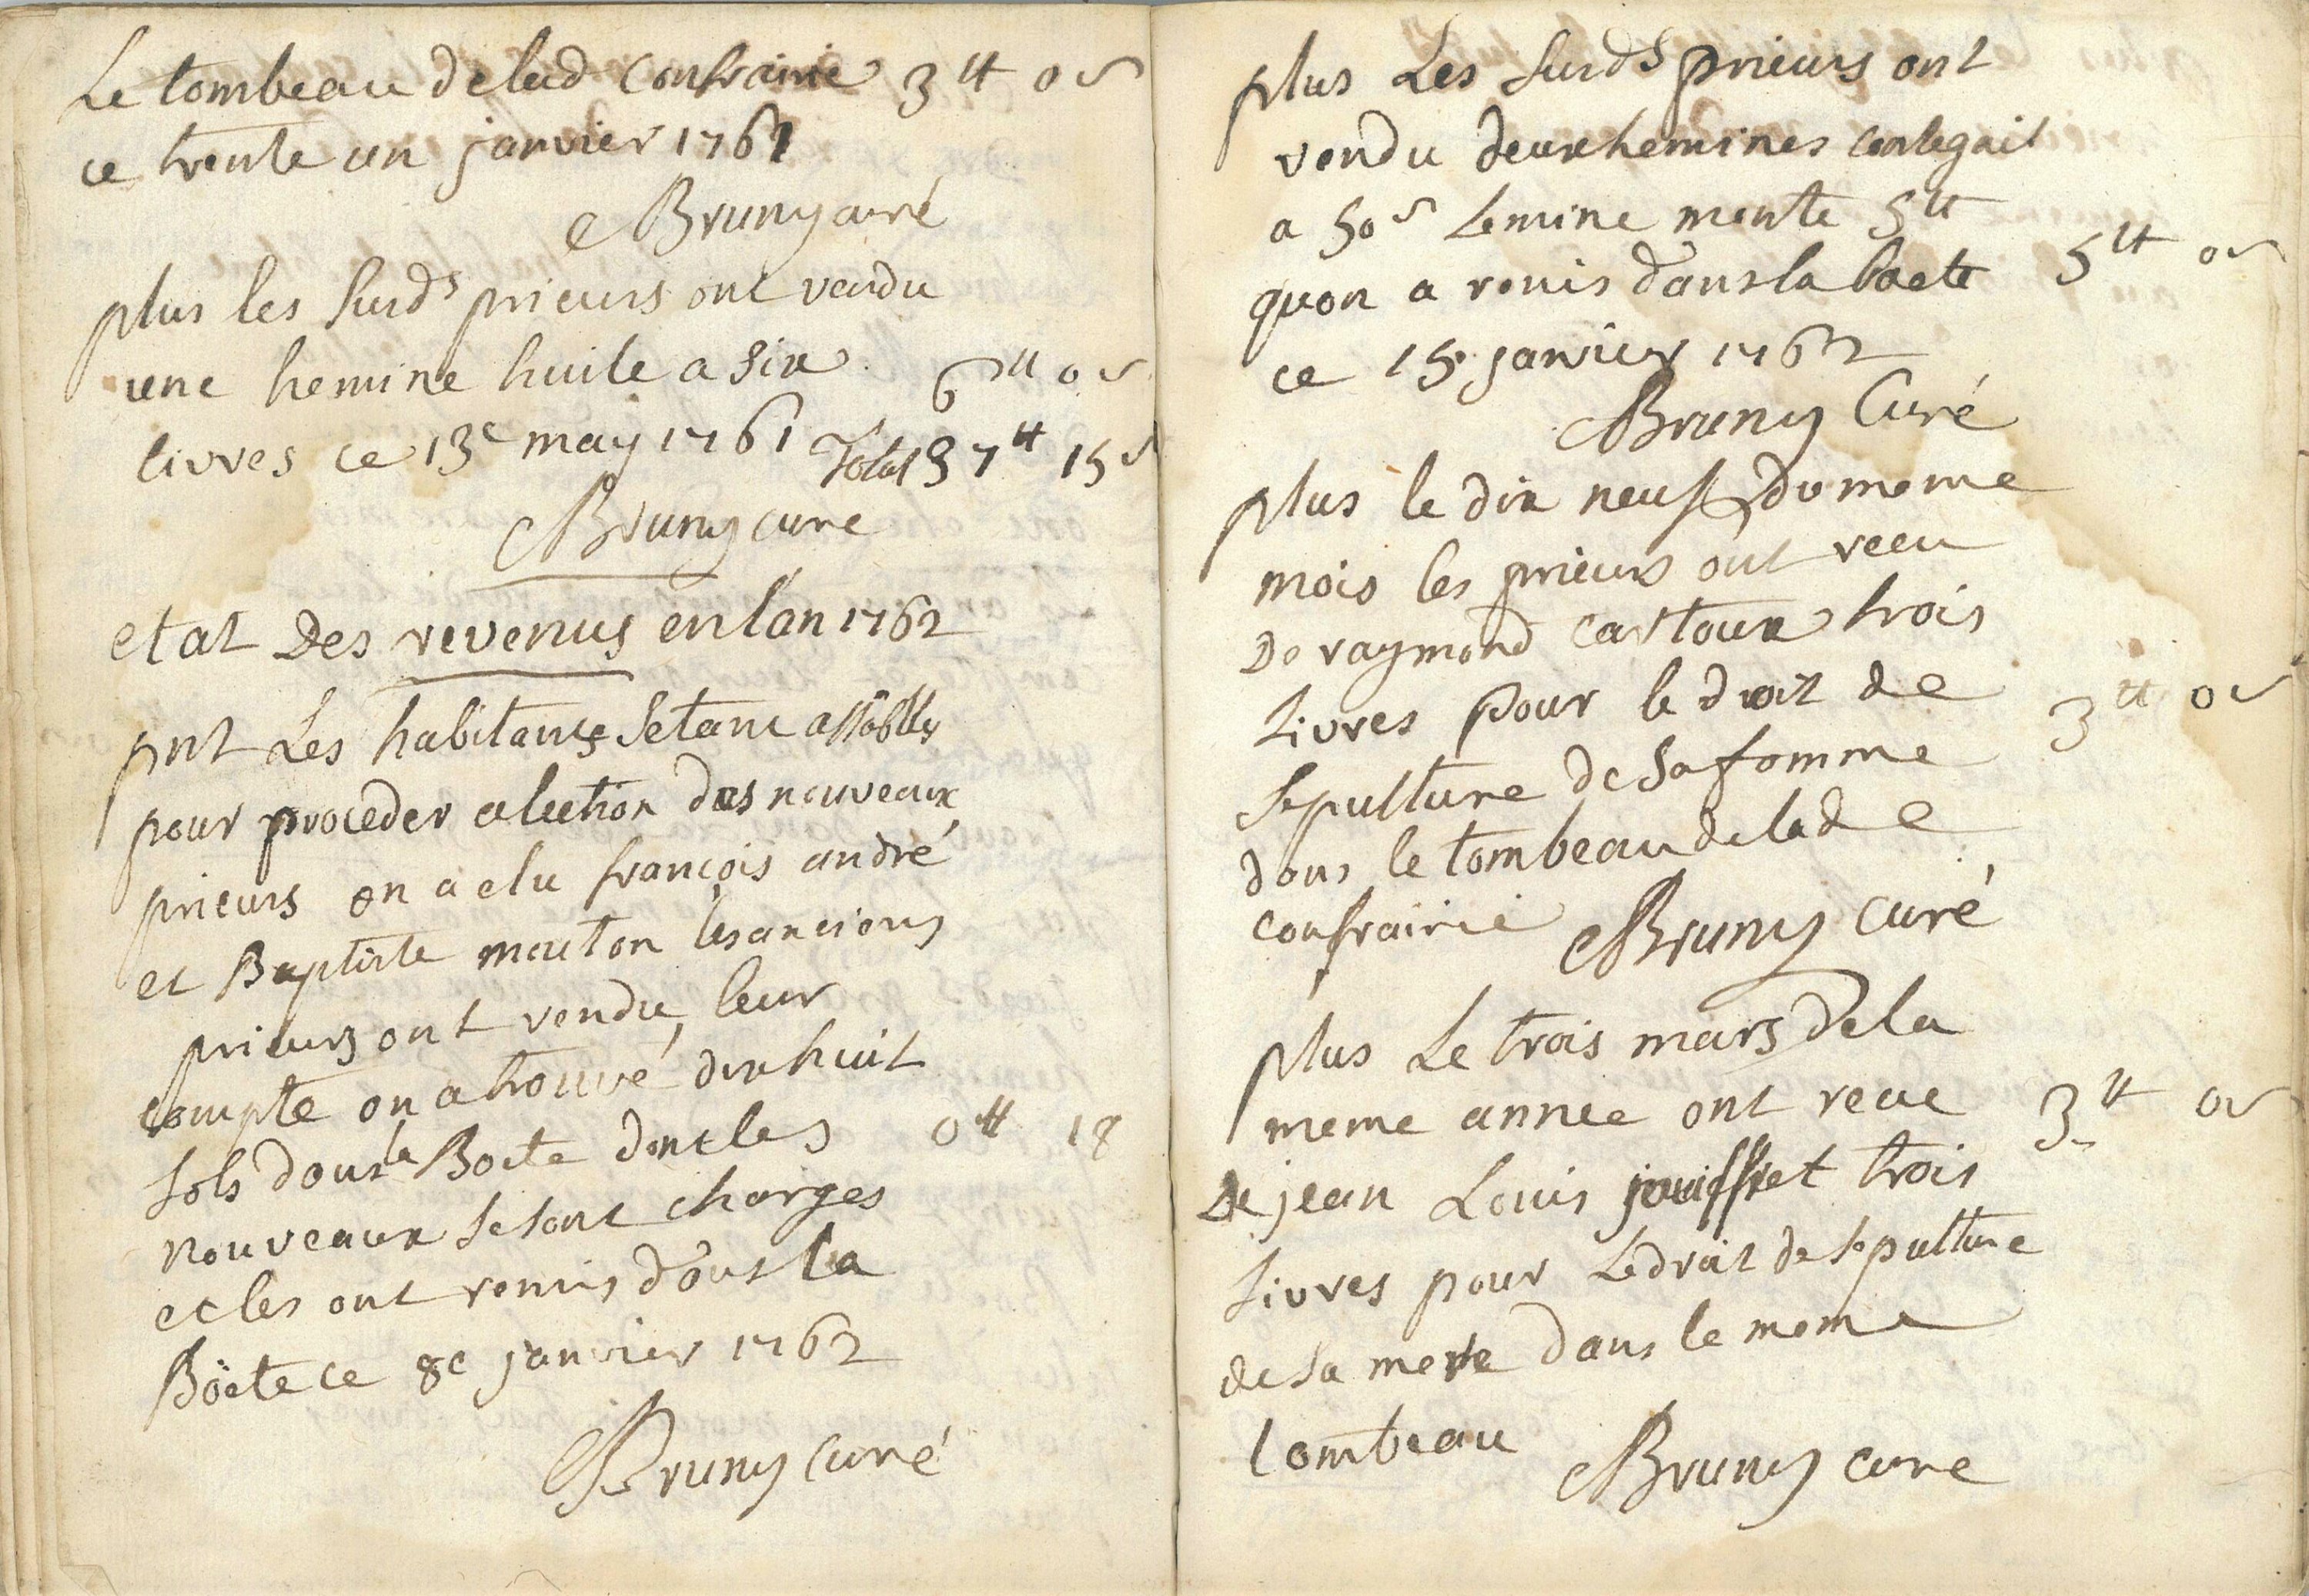 Le tombeau de lad confrairie 3tt 0s
ce trente un janvier 1761
Bruny curé
plus les surds prieurs ont vendu
une hemine huile a six 6tt 0s
livres ce 13e may 1761 Total 37tt 15s
Bruny cure
etat Des revenus en lan 1762
pnt Les habitans setant
pour proceder a lection des nouveaux
prieurs on a elu françois andré
et Baptiste mouton les anciens
prieurs ont rendu leur
compte on a trouvé dix huit
sols dans la Boete dont les 0tt 18
nouveaux se sont charges
et les ont remis dans la
Boëte ce 8e janvier 1762
Bruny curé
plus Les surds prieurs ont
vendu deux hemines
a 50s Lemine monte 5tt
quon a remis dans la boete 5tt 0s
ce 15. janvier 1762
Bruny Curé
plus le dix neuf du meme
mois les prieurs ont receu
De raymond cartoux trois
Livres pour le droit de 3tt 0s
sepulture de sa femme
dans le tombeau de lade
confrairie Bruny curé
plus Le trois mars de la
meme annee ont receu 3tt 0s
De jean Louis jouiffret trois
Livres pour Le droit de sepulture
de sa mere dans le meme
tombeau Bruny cure